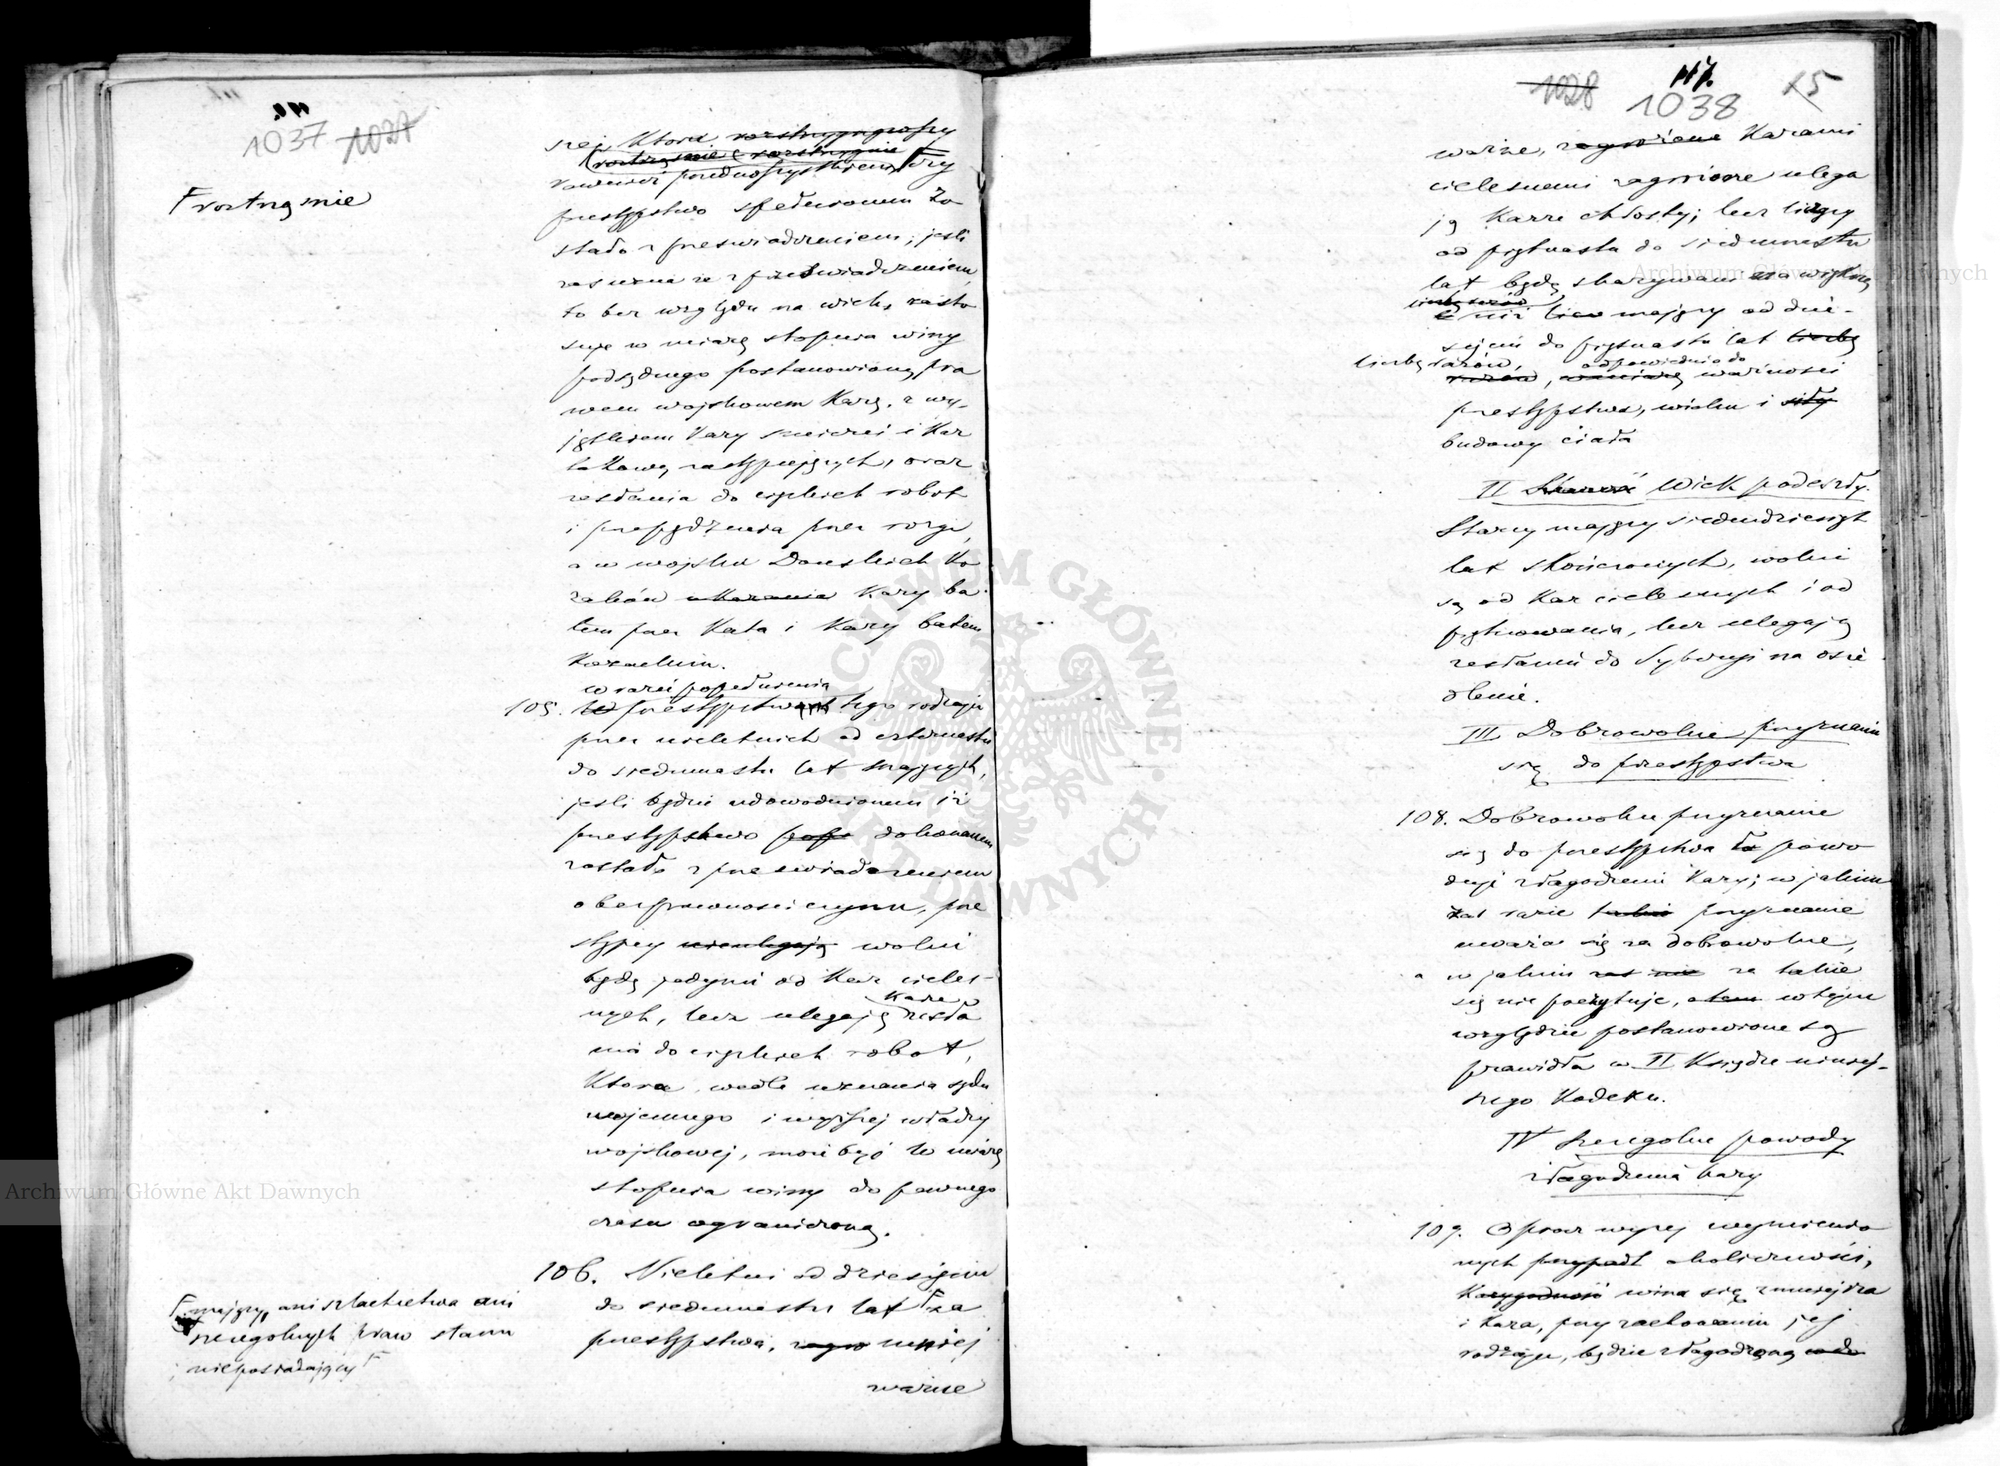 1037 1027
rostrząśnie
szej, która rozstrzygnąwszy
rostrząśnie i rozstrzygnie
przedewszystkiem, czy
przestępstwo spełnionem zo
stało z przeswiadczeniem; jeśli
zaś uzna że z przeświadczeniem,
to bez względu na wiek, zasto
suje w miarę stopnia winy
podsądnego postanowioną pra
wem wojskowem karę, z wy-
jątkiem kary śmierci i kar
takową zastępujących, oraz
zesłania do ciężkich robót
i przepędzenia przez rózgi,
a w wojsku Dońskich Ko
zaków ukarania kary ba-
tem przez kata i kary batem
kozackim.
w razie popełnienia
105. W przestępstwach tego rodzaju
przez nieletnich od czternastu
do siedmnastu lat mających,
jeśli będzie udowodnionem iż
przestępstwo pop dokonanem
zostało z przeswiadczeniem
o bezprawności czynu, prze
stępcy nieulegają wolni
będą jedynie od kar cieles-
karze
nych, lecz ulegają zesła
nia do ciężkich robót,
która, wedle uznania sądu
wojennego i wyższej władzy
wojskowej, może być w miarę
stopnia winy do pewnego
czasu ograniczoną.
106. Nieletni od dziesięciu
do siedmnastu lat za
przestępstwa, zagro mniej
ważne
mający, ani szlachectwa ani
szczególnych praw stanu
nieposiadający
1028 117. 1038 15
ważne, zagrożone karami
cielesnemi zagrożone ulega
ją karze chłosty; lecz liczący
od piętnastu do siedmnastu
lat będą skazywani na większą
liczbę razów
niż mający od dzie-
sięciu do piętnastu lat liczbę
liczbę razów, odpowiednio do
razów, w miarę ważności
przestępstwa, wieku i siły
budowy ciała
II Starość Wiek podeszły.
Starcy mający siedmdziesiąt
lat skończonych, wolni
są od kar cielesnych i od
piętnowania, lecz ulegają
zesłaniu do Syberyi na osie
dlenie.
III Dobrowolne przyznanie
się do przestępstwa
108. Dobrowolne przyznanie
się do przestępstwa to powo
duje złagodzenie kary; w jakim
zaś razie takie przyznanie
uważa się za dobrowolne,
a w jakim zaś nie za takie
się nie poczytuje, o tem w tejże
względzie postanowione są
prawidła w II Księdze niniej-
szego Kodeksu.
IV Szczególne powody
złagodzenia kary
109. Oprócz wyżej wymienio
nych przypadk okoliczności,
karygodność wina się zmniejsza
i kara, przy zachowaniu jej
rodzaju, będzie złagodzoną
Archiwum Główne Akt Dawnych
Archiwum Główne Akt Dawnych
ARCHIWUM GŁÓWNE AKT DAWNYCH